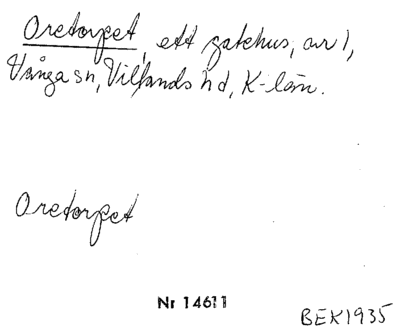 Oretorpet, ett gatehus, av 1,
Vånga sn, Villands hd, K-län.
Oretorpet
Nr 14611
BEK1935